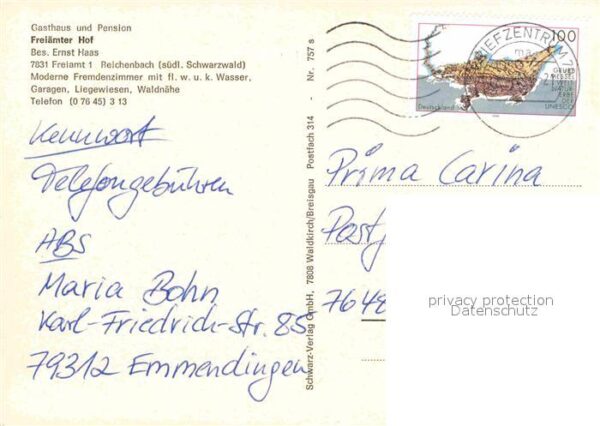 Gasthaus und Pension
Freiämter Hof
Bes. Ernst Haas
7831 Freiamt 1 Reichenbach (südl. Schwarzwald)
Moderne Fremdenzimmer mit fl. w. u. k. Wasser,
Garagen, Liegewiesen, Waldnähe
Telefon (0 76 45) 3 13
Kennwort
Telefongebühren
ABS
Maria Bohn
Karl-Friedrich-Str. 85
79312 Emmendingen
Schwarz-Verlag GmbH, 7808 Waldkirch/Breisgau Postfach 314 - Nr. 757 s
BRIEFZENTRUM
100
GRUBE
MESSEL
WELT
NATUR
ERBE
DER
UNESCO
Deutschland
Prima Carina
Postf
7648
privacy protection
Datenschutz